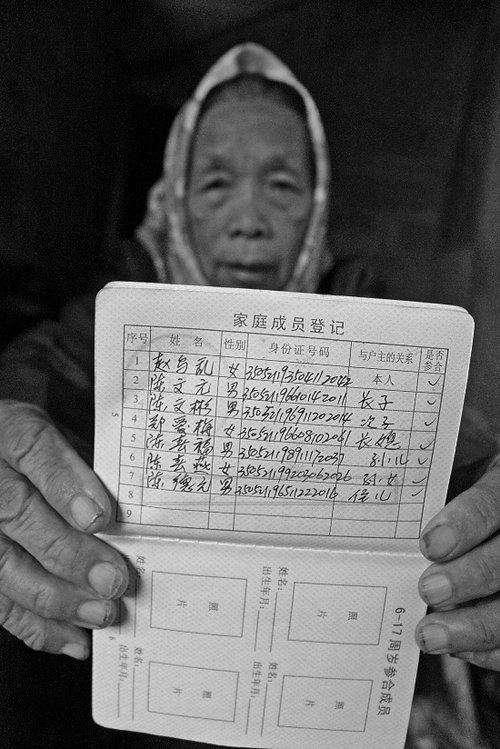 家庭成员登记
序号 姓名 性别 身份证号码 与户主的关系 是否参合
1 赵 女 350521193504112042 本人 ✓
2 陈文元 男 长子 ✓
3 陈文彬 男 350521196911202014 次子 ✓
4 郑爱梅 女 350521196608102061 长媳 ✓
5 陈 福 男 孙儿 ✓
6 陈 女 350521199203062026 孙女 ✓
7 陈德元 男 350521196511222016 侄儿 ✓
8
9
5
6-17周岁参合成员
照片
姓名:
出生年月:
照片
姓名:
出生年月:
照片
姓名:
出生年月:
照片
姓名:
出生年月: